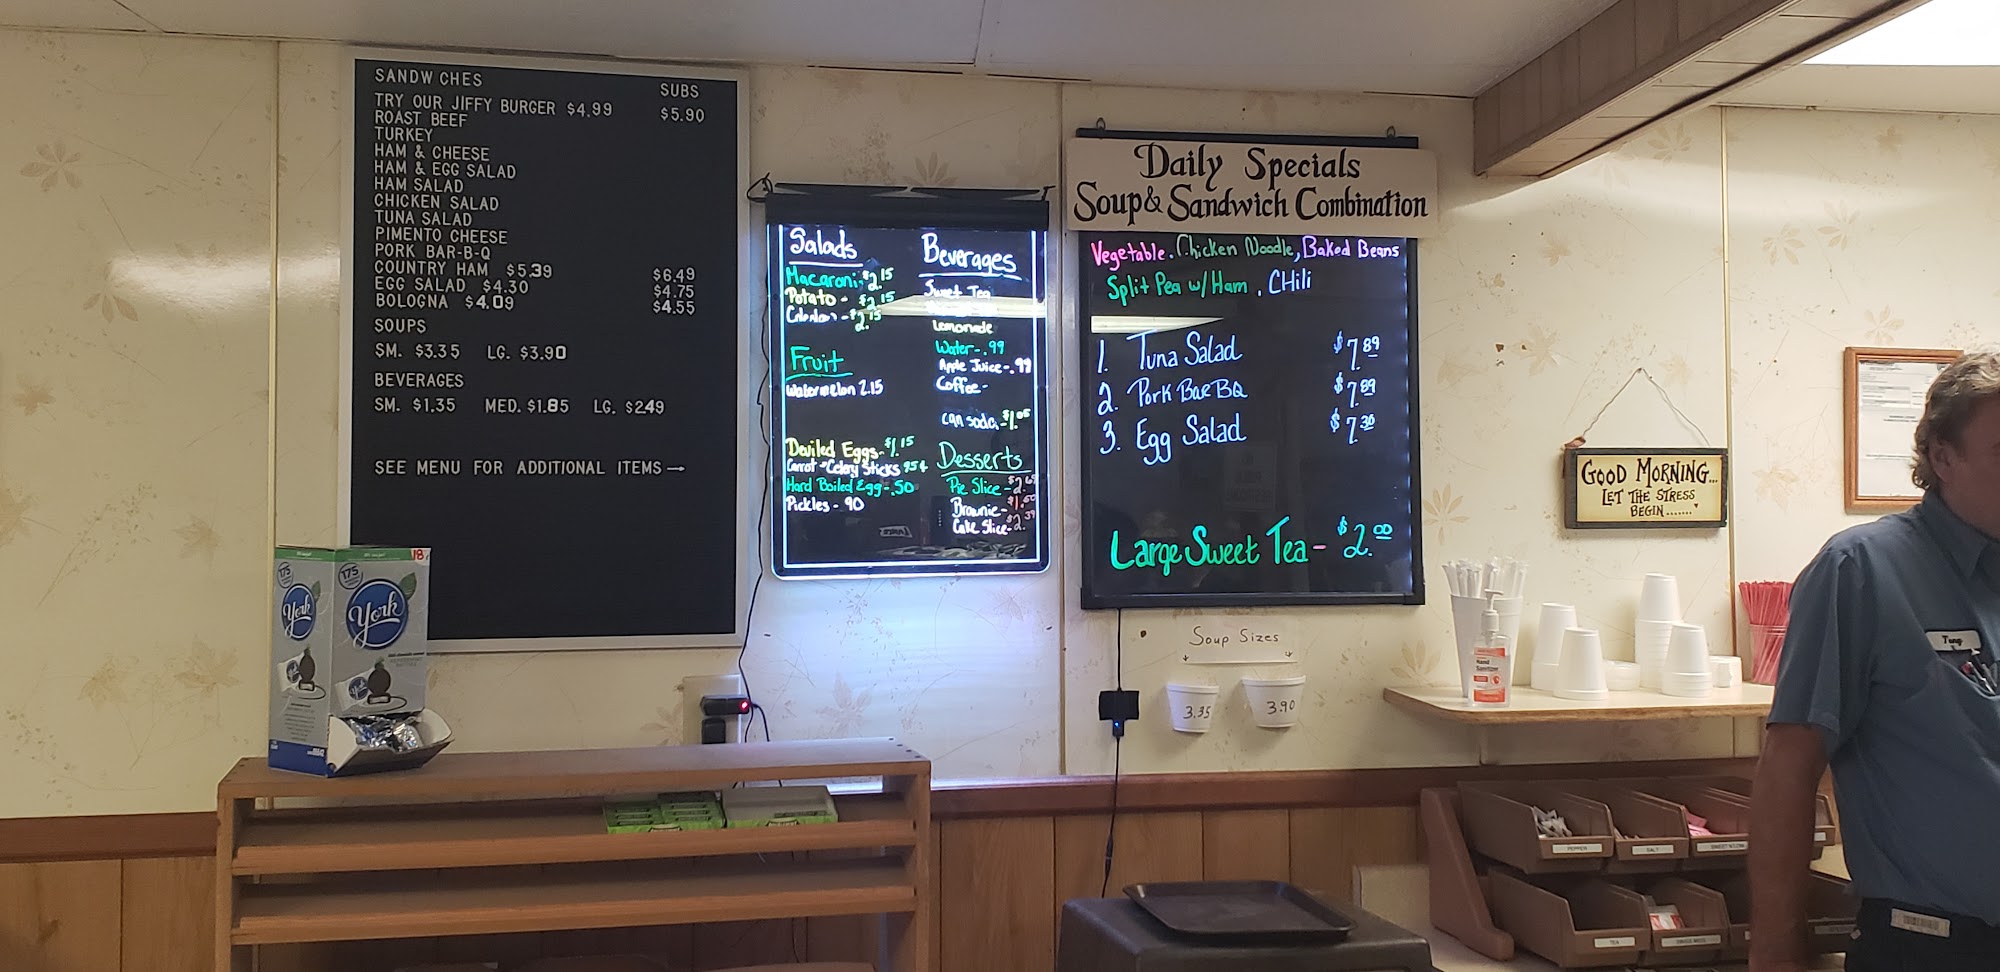 SANDW CHES SUBS
TRY OUR JIFFY BURGER $4.99 $5.90
ROAST BEEF
TURKEY
HAM & CHEESE
HAM & EGG SALAD
HAM SALAD
CHICKEN SALAD
TUNA SALAD
PIMENTO CHEESE
PORK BAR-B-Q
COUNTRY HAM $5.39 $6.49
EGG SALAD $4.30 $4.75
BOLOGNA $4.09 $4.55
SOUPS
SM. $3.35 LG. $3.90
BEVERAGES
SM. $1.35 MED. $1.85 LG. $2.49
SEE MENU FOR ADDITIONAL ITEMS→
Salads
Macaroni- $2.15
Potato - $2.15
- $2.15
Fruit
Watermelon 2.15
Deviled Eggs- $1.15
Carrot - Celery Sticks 95¢
Hard Boiled Egg - .50
Pickles - 90
Beverages
Sweet Tea
Lemonade
Water - .99
Apple Juice - .99
Coffee -
Can soda - $1.05
Desserts
Pie Slice -
Brownie - $1.50
Cake Slice -
Daily Specials
Soup & Sandwich Combination
Vegetable, Chicken Noodle, Baked Beans
Split Pea w/ Ham, CHili
1. Tuna Salad $7.89
2. Pork Bar BQ $7.89
3. Egg Salad $7.30
Large Sweet Tea - $2.00
Soup Sizes
3.35 3.90
GOOD MORNING...
LET THE STRESS
BEGIN.......
175
York
175
York
18
Hand
Sanitizer
Tony
PEPPER
SALT
TEA